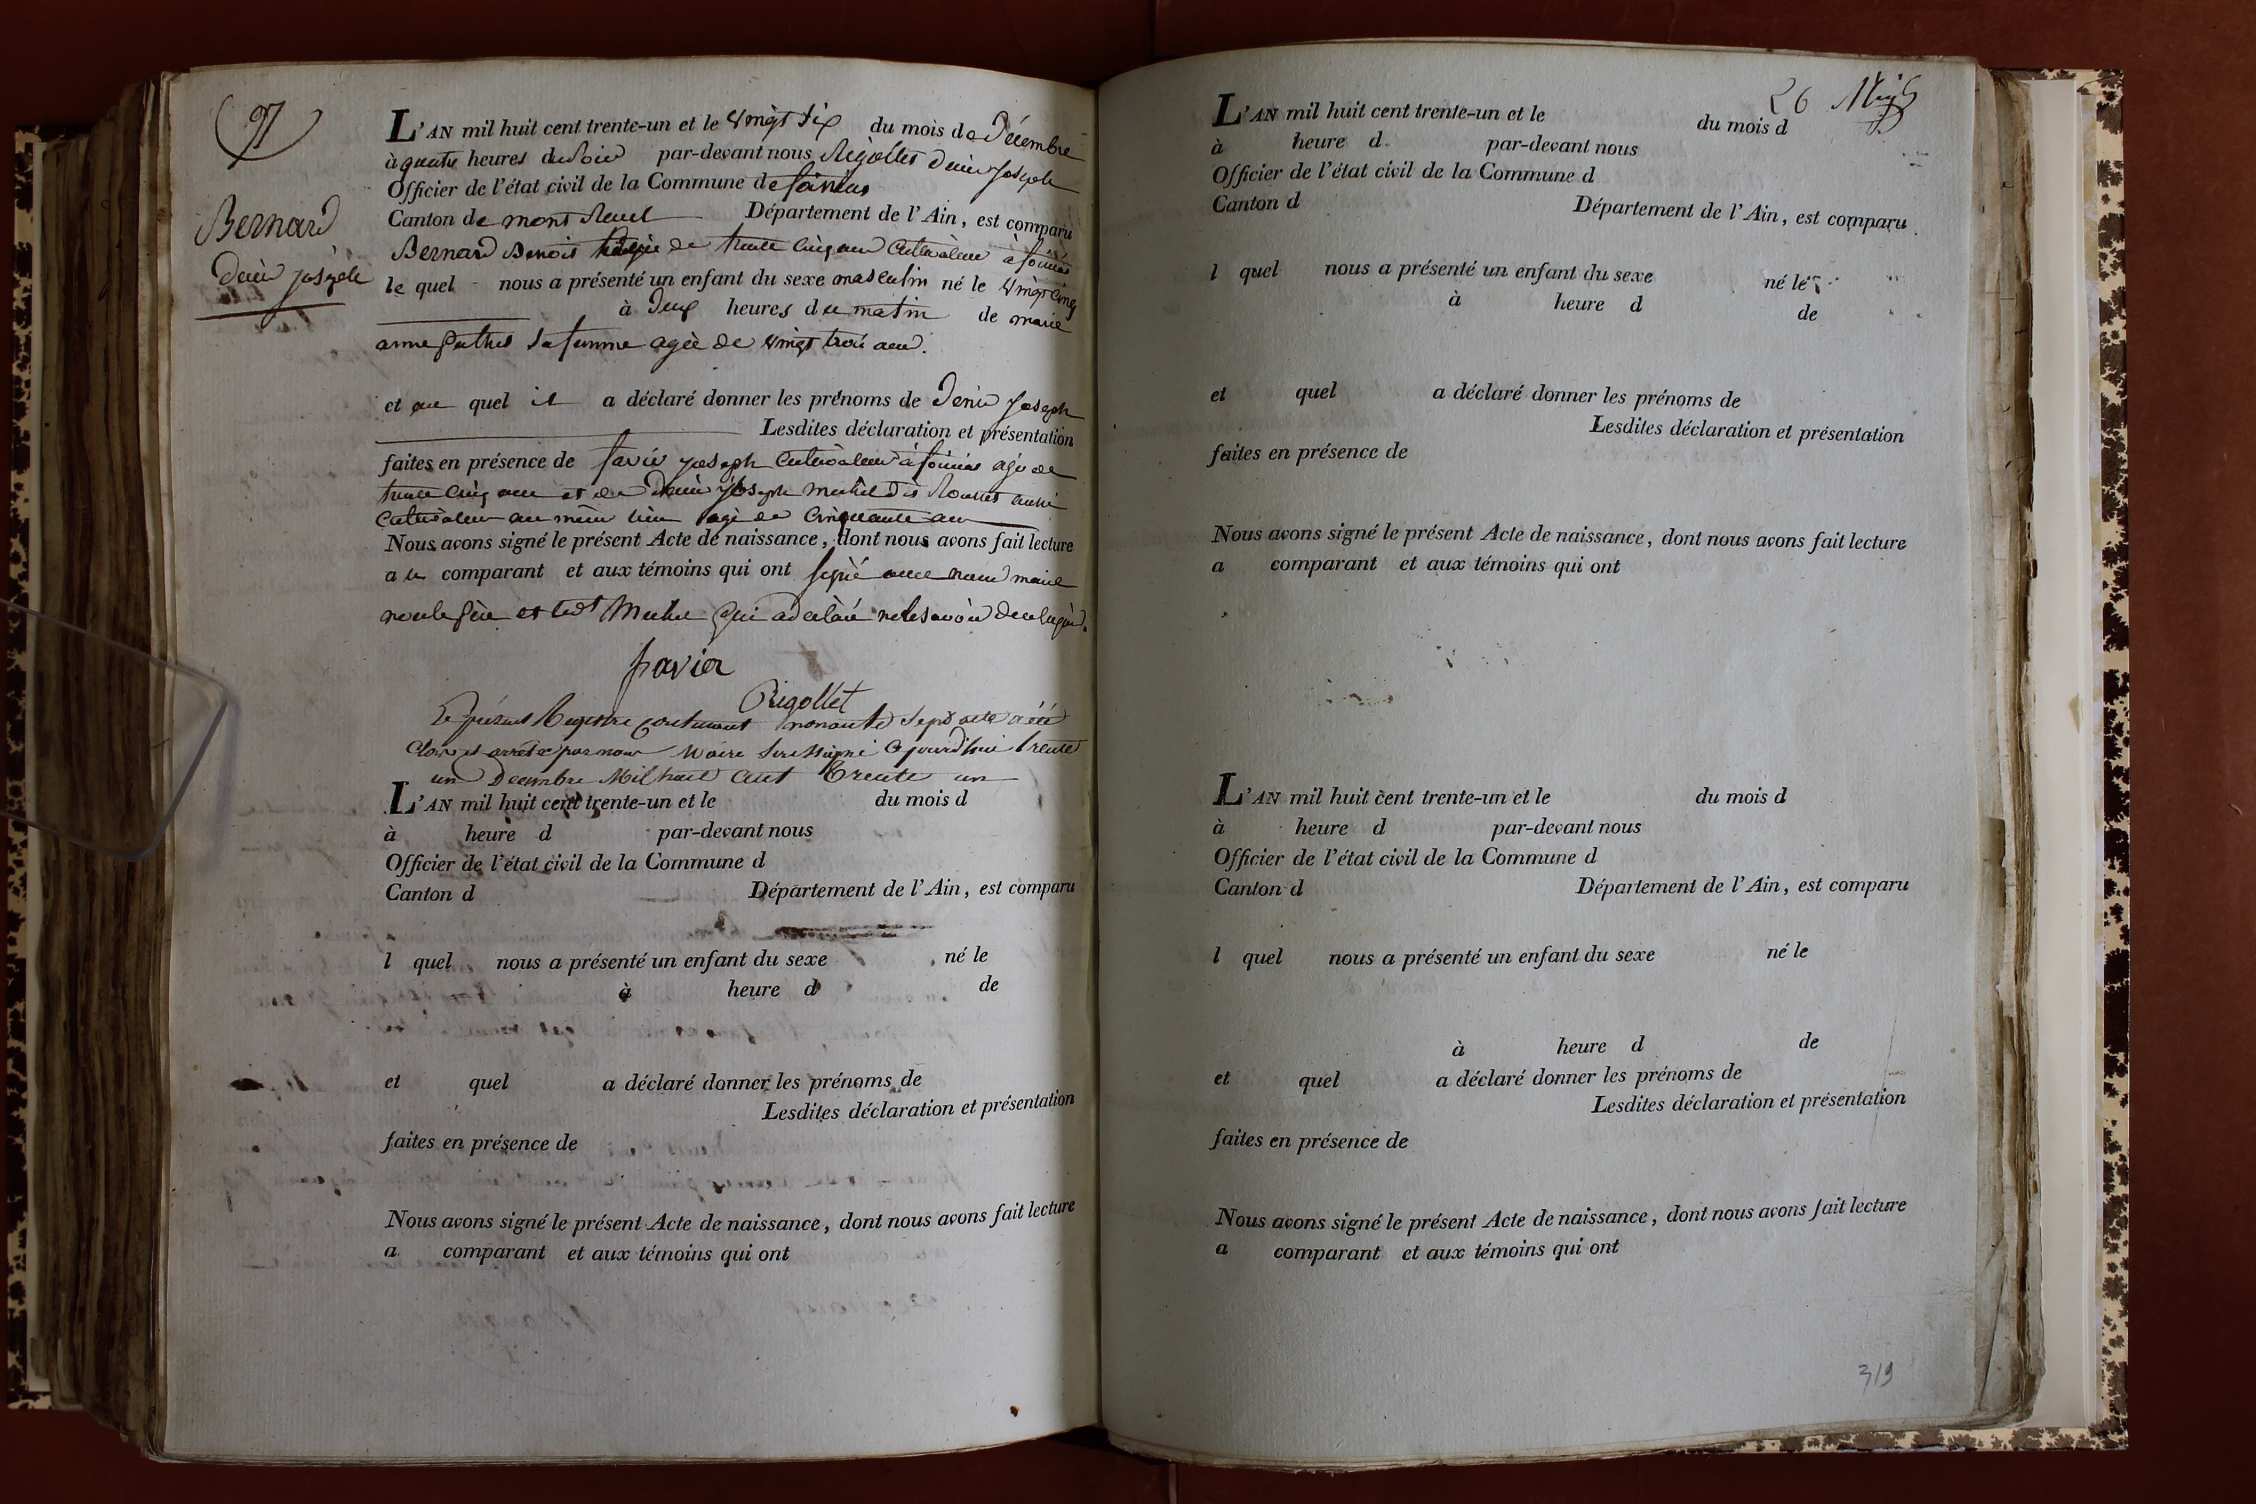 97
Bernard
Denis joseph
L'AN mil huit cent trente-un et le vingt six du mois de Décembre
à quatre heures du Soir par-devant nous Rigollet Denis Joseph
Officier de l'état civil de la Commune de
Canton de mont Département de l'Ain, est comparu
Bernard Benoit de trente cinq ans Cultivateur à
le quel nous a présenté un enfant du sexe masculin né le vingt cinq
à Deux heures du matin de marie
anne sa femme agée de vingt trois ans.
et au quel il a déclaré donner les prénoms de Denis Joseph
Lesdites déclaration et présentation
faites en présence de favier joseph Cultivateur à agé de
trente cinq ans et de Denis Joseph aussi
Cultivateur au même lieu agé de Cinquante ans
Nous avons signé le présent Acte de naissance, dont nous avons fait lecture
au comparant et aux témoins qui ont signé avec nous maire
non le père et led. qui a déclaré ne le savoir de ce requis.
favier
Rigollet
le présent Registre contenant nonante sept acte a été
Clos et arrêté par nous Maire Soussigné Cejourd'hui trente
un Decembre Mil huit Cent Trente un
L'AN mil huit cent trente-un et le du mois d
à heure d par-devant nous
Officier de l'état civil de la Commune d
Canton d Département de l'Ain, est comparu
l quel nous a présenté un enfant du sexe né le
à heure d de
et quel a déclaré donner les prénoms de
Lesdites déclaration et présentation
faites en présence de
Nous avons signé le présent Acte de naissance, dont nous avons fait lecture
a comparant et aux témoins qui ont
26
L'AN mil huit cent trente-un et le du mois d
à heure d par-devant nous
Officier de l'état civil de la Commune d
Canton d Département de l'Ain, est comparu
l quel nous a présenté un enfant du sexe né le
à heure d de
et quel a déclaré donner les prénoms de
Lesdites déclaration et présentation
faites en présence de
Nous avons signé le présent Acte de naissance, dont nous avons fait lecture
a comparant et aux témoins qui ont
L'AN mil huit cent trente-un et le du mois d
à heure d par-devant nous
Officier de l'état civil de la Commune d
Canton d Département de l'Ain, est comparu
l quel nous a présenté un enfant du sexe né le
à heure d de
et quel a déclaré donner les prénoms de
Lesdites déclaration et présentation
faites en présence de
Nous avons signé le présent Acte de naissance, dont nous avons fait lecture
a comparant et aux témoins qui ont
319